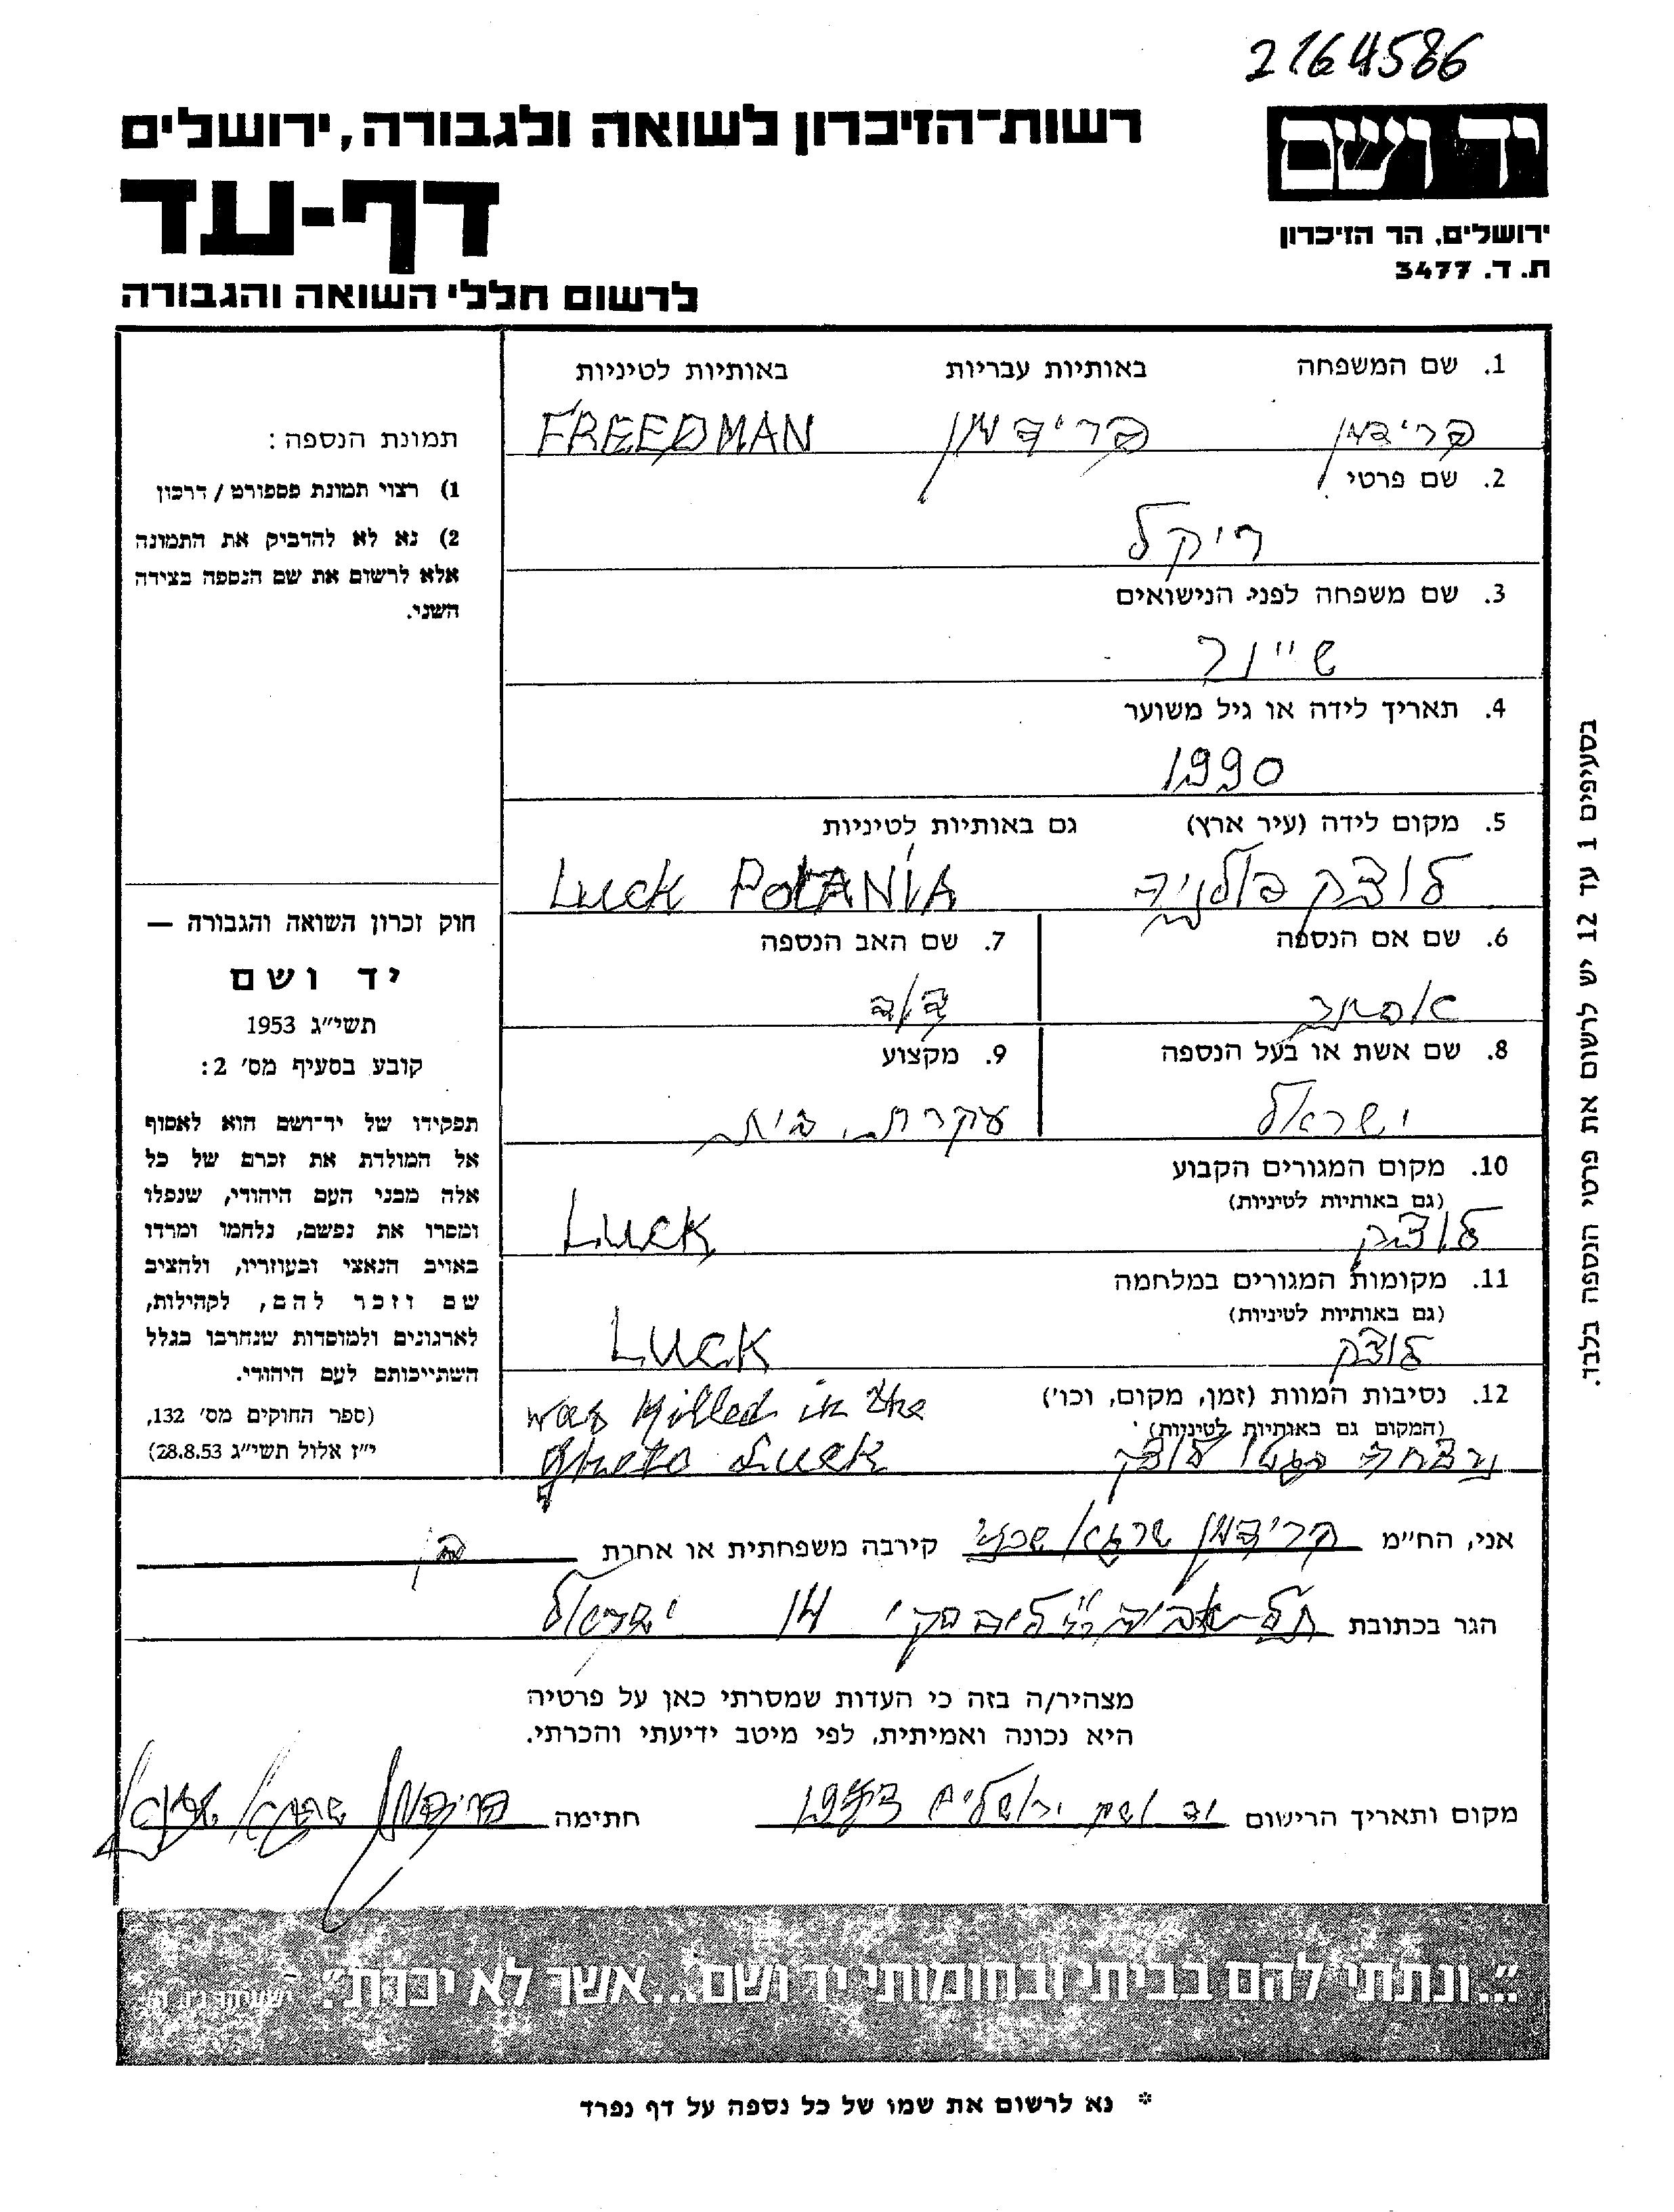 2164586
רשות-הזיכרון לשואה ולגבורה, ירושלים
יד ושם
דף-עד
ירושלים, הר הזיכרון
ת. ד. 3477
לרשום חללי השואה והגבורה
1. שם המשפחה באותיות עבריות באותיות לטיניות
פרידמן פרידמן FREEDMAN
2. שם פרטי
ריקל
3. שם משפחה לפני הנישואים
שיינר
4. תאריך לידה או גיל משוער
1990
5. מקום לידה (עיר ארץ) גם באותיות לטיניות
לוצק פולניה Luck POLANIA
6. שם אם הנספה 7. שם האב הנספה
אסתר דוד
8. שם אשת או בעל הנספה 9. מקצוע
ישראל עקרת בית
10. מקום המגורים הקבוע
(גם באותיות לטיניות)
לוצק Luck
11. מקומות המגורים במלחמה
(גם באותיות לטיניות)
לוצק Luck
12. נסיבות המוות (זמן, מקום, וכו')
(המקום גם באותיות לטיניות)
was killed in the
נרצחה בגטו לוצק gheto Luck
תמונת הנספה:
1) רצוי תמונת פספורט / דרכון
2) נא לא להדביק את התמונה
אלא לרשום את שם הנספה בצידה
השני.
חוק זכרון השואה והגבורה —
יד ושם
תשי"ג 1953
קובע בסעיף מס' 2:
תפקידו של יד-ושם הוא לאסוף
אל המולדת את זכרם של כל
אלה מבני העם היהודי, שנפלו
ומסרו את נפשם, נלחמו ומרדו
באויב הנאצי ובעוזריו, ולהציב
שם וזכר להם, לקהילות,
לארגונים ולמוסדות שנחרבו בגלל
השתייכותם לעם היהודי.
(ספר החוקים מס' 132,
י"ז אלול תשי"ג 28.8.53)
בסעיפים 1 עד 12 יש לרשום את פרטי הנספה בלבד.
אני, הח"מ פרידמן שרגא קירבה משפחתית או אחרת בן
הגר בכתובת תל-אביב 14 ישראל
מצהיר/ה בזה כי העדות שמסרתי כאן על פרטיה
היא נכונה ואמיתית, לפי מיטב ידיעתי והכרתי.
מקום ותאריך הרישום יד ושם ירושלים חתימה פרידמן שרגא
"...ונתתי להם בביתי ובחומותי יד ושם...אשר לא יכרת". ישעיהו נ"ו, ה'
* נא לרשום את שמו של כל נספה על דף נפרד